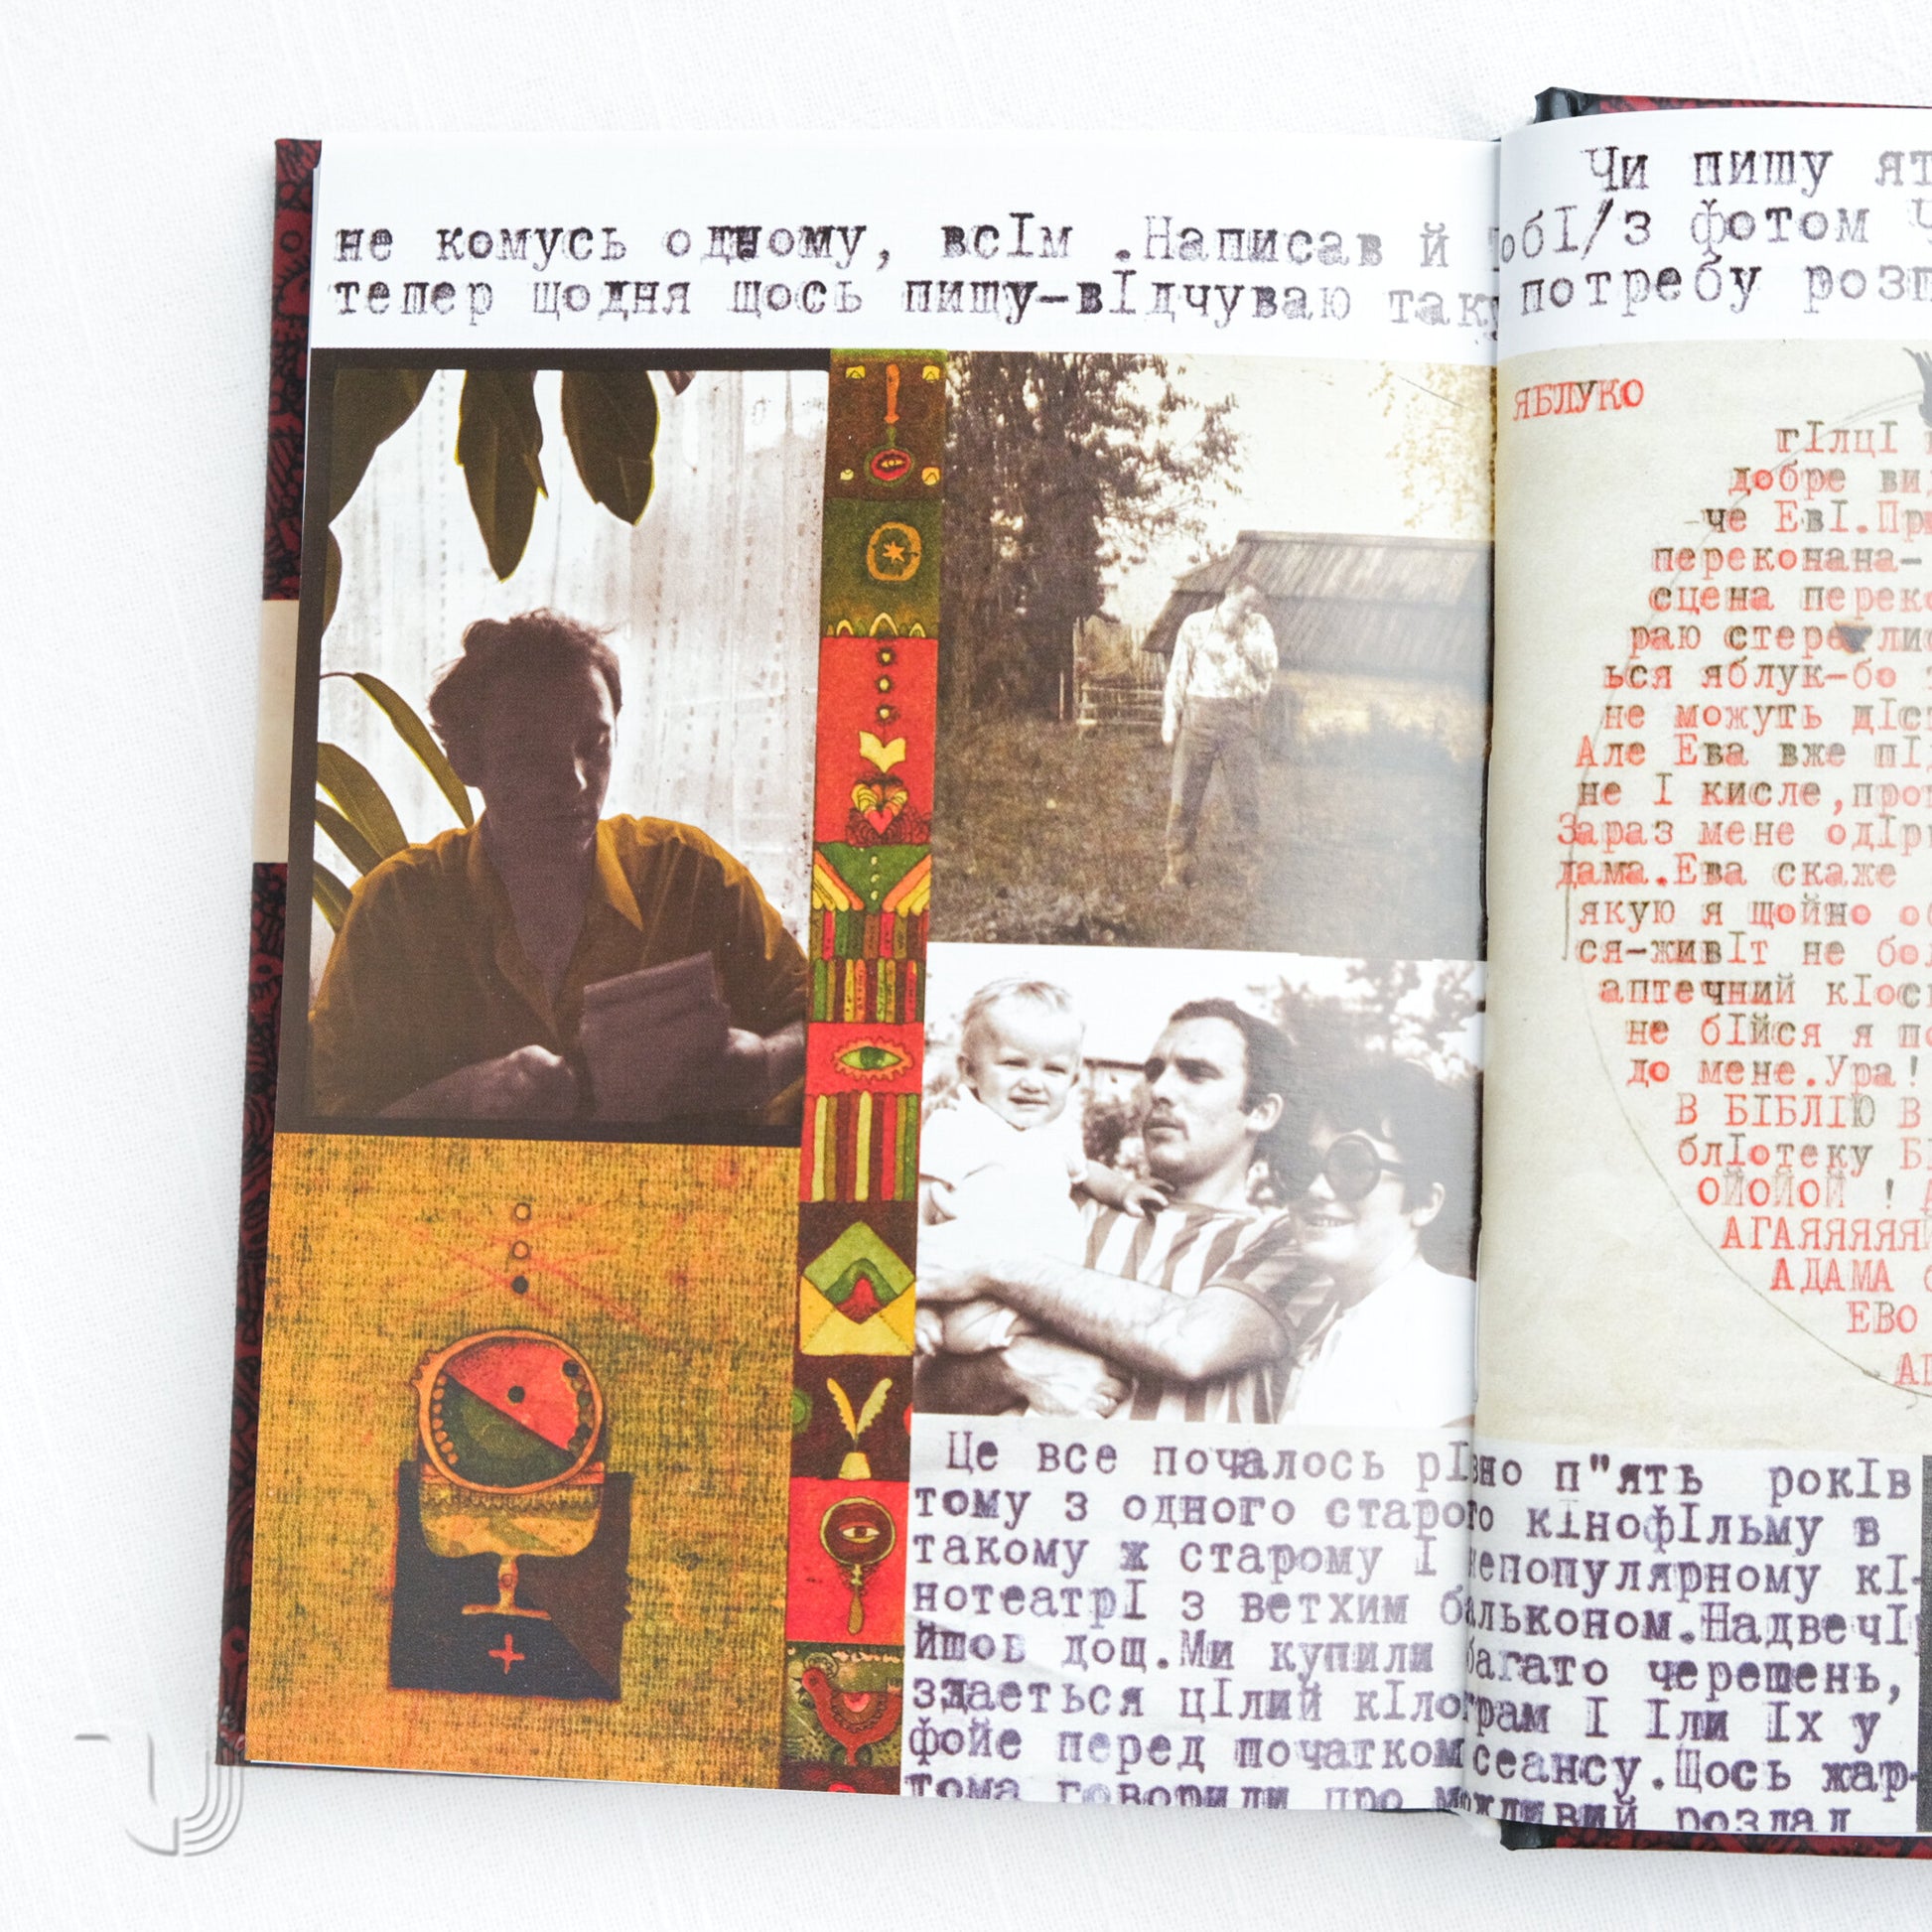 не комусь одному, всІм .Написав й тобІ/з фотом
тепер щодня щось пишу-вІдчуваю таку потребу
Чи пишу
ЯБЛУКО
гІлцІ
добре
че ЕвІ.
переконана-
сцена
раю
ься яблук-бо
не можуть
Але Ева вже
не І кисле,
Зараз мене
дама.Ева скаже
якую я щойно
ся-живІт не
аптечний
не бІйся я
до мене.Ура!
В БІБЛІЮ В
блІотеку
ОЙОЙОЙ !
АДАМА
ЕВО
Це все почалось рІвно п"ять рокІв
тому з одного старого кІнофІльму в
такому ж старому І непопулярному кІ-
нотеатрІ з ветхим балконом.НадвечІ
йшов дощ.Ми купили багато черешень,
здається цІлий кІлограм І Іли Іх у
фойе перед початком сеансу.Щось жар-
тома говорили про можливий розлад